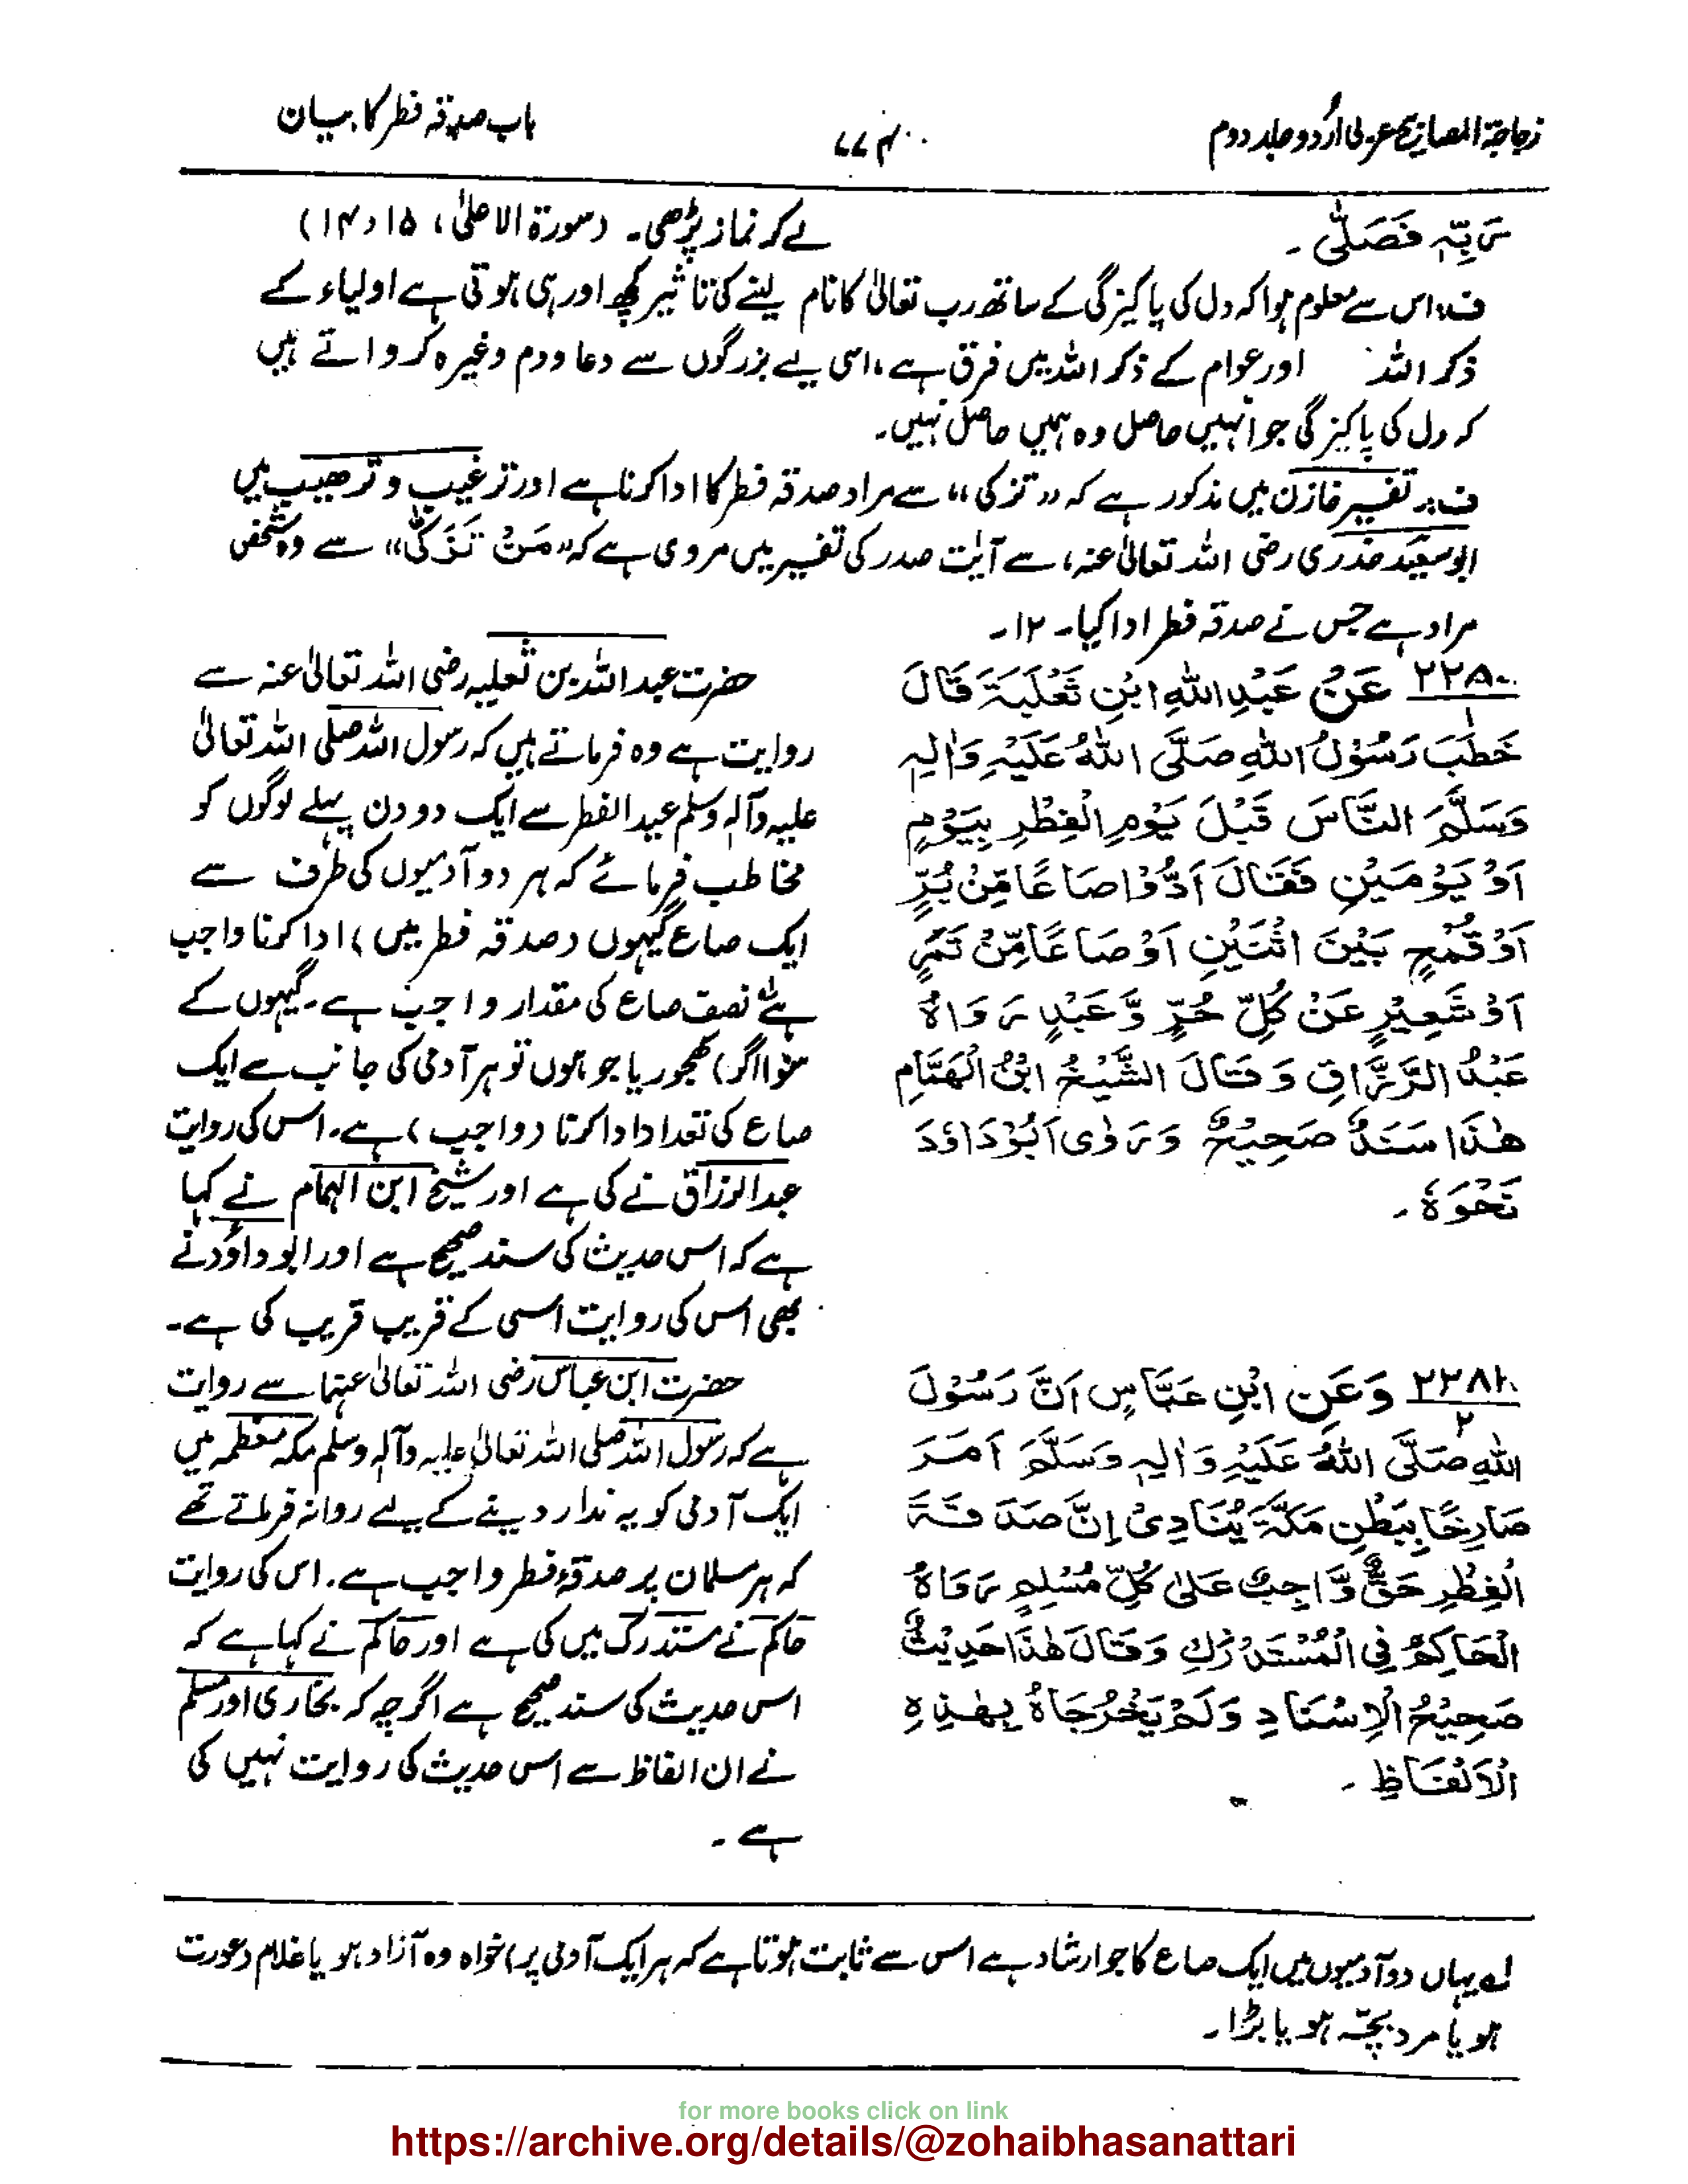 زجاجۃ المصابیح عربی اُردو جلد دوم
۴۷۷
باب صدقہ فطر کا بیان
رَبِّہٖ فَصَلّٰی ۔
لے کر نماز پڑھی۔ (سورۃ الاعلیٰ، ۱۵ و ۱۴)
ف:۔ اس سے معلوم ہوا کہ دل کی پاکیزگی کے ساتھ رب تعالیٰ کا نام لینے کی تاثیر کچھ اور ہی ہوتی ہے اولیاء کے
ذکر اللہ اور عوام کے ذکر اللہ میں فرق ہے، اسی لیے بزرگوں سے دعا ودم وغیرہ کرواتے ہیں
کہ دل کی پاکیزگی جو انہیں حاصل وہ ہمیں حاصل نہیں۔
ف:۔ تفسیر خازن میں مذکور ہے کہ "تزکی" سے مراد صدقہ فطر کا ادا کرنا ہے اور ترغیب و ترھیب میں
ابو سعید خدری رضی اللہ تعالیٰ عنہ، سے آیٰت صدر کی تفسیر میں مروی ہے کہ "مَنْ تَزَکّٰی" سے وہ شخص
مراد ہے جس نے صدقہ فطر ادا کیا۔ ۱۲۔
۲۲۸۰ عَنْ عَبْدِ اللّٰہِ ابْنِ ثَعْلَبَۃَ قَالَ
۱
خَطَبَ رَسُوْلُ اللّٰہِ صَلَّی اللّٰہُ عَلَیْہِ وَاٰلِہٖ
وَسَلَّمَ النَّاسَ قَبْلَ یَوْمِ الْفِطْرِ بِیَوْمٍ
اَوْ یَوْمَیْنِ فَقَالَ اَدُّوْا صَاعًا مِّنْ بُرٍّ
اَوْ قَمْحٍ بَیْنَ اثْنَیْنِ اَوْ صَاعًا مِّنْ تَمَرٍ
اَوْ شَعِیْرٍ عَنْ کُلِّ حُرٍّ وَّعَبْدٍ رَوَاہُ
عَبْدُ الرَّزَّاقِ وَقَالَ الشَّیْخُ ابْنُ الْھَمَّامِ
ھٰذَا سَنَدٌ صَحِیْحٌ وَرَوٰی اَبُوْدَاؤدَ
نَحْوَہٗ ۔
حضرت عبد اللہ بن ثعلبہ رضی اللہ تعالیٰ عنہ سے
روایت ہے وہ فرماتے ہیں کہ رسول اللہ صلی اللہ تعالیٰ
علیہ وآلہ وسلم عید الفطر سے ایک دو دن پہلے لوگوں کو
مخاطب فرمائے کہ ہر دو آدمیوں کی طرف سے
ایک صاع گیہوں (صدقہ فطر میں) ادا کرنا واجب
ہے نصف صاع کی مقدار واجب ہے۔ گیہوں کے
سوا اگر) کھجور یا جو ہوں تو ہر آدمی کی جانب سے ایک
صاع کی تعداد ادا کرنا (واجب) ہے۔ اس کی روایت
عبدالرزاق نے کی ہے اور شیخ ابن الہمام نے کہا
ہے کہ اس حدیث کی سند صحیح ہے اور ابو داؤد نے
بھی اس کی روایت اسی کے قریب قریب کی ہے۔
۲۳۸۱ وَعَنِ ابْنِ عَبَّاسٍ اَنَّ رَسُوْلَ
۲
اللّٰہِ صَلَّی اللّٰہُ عَلَیْہِ وَاٰلِہٖ وَسَلَّمَ اَمَرَ
صَارِخًا بِبَطْنِ مَکَّۃَ یُنَادِیْ اِنَّ صَدَقَۃَ
الْفِطْرِ حَقٌّ وَّاجِبٌ عَلٰی کُلِّ مُسْلِمٍ رَوَاہُ
الْحَاکِمُ فِی الْمُسْتَدْرَکِ وَقَالَ ھٰذَا حَدِیْثٌ
صَحِیْحُ الْاِسْنَادِ وَلَمْ یَخْرُجَاہُ بِھٰذِہِ
الْاَلْفَاظِ ۔
حضرت ابن عباس رضی اللہ تعالیٰ عنہما سے روایت
ہے کہ رسول اللہ صلی اللہ تعالیٰ علیہ وآلہ وسلم مکہ معظمہ میں
ایک آدمی کو یہ ندار دینے کے لیے روانہ فرماتے تھے
کہ ہر مسلمان پر صدقۂ فطر واجب ہے۔ اس کی روایت
حاکم نے مستدرک میں کی ہے اور حاکم نے کہا ہے کہ
اس حدیث کی سند صحیح ہے اگرچہ کہ بخاری اور مسلم
نے ان الفاظ سے اس حدیث کی روایت نہیں کی
ہے ۔
لہ یہاں دو آدمیوں میں ایک صاع کا جو ارشاد ہے اس سے ثابت ہوتا ہے کہ ہر ایک آدمی پر (خواہ وہ آزاد ہو یا غلام (عورت
ہو یا مرد بچّہ ہو یا بڑا۔
for more books click on link
https://archive.org/details/@zohaibhasanattari